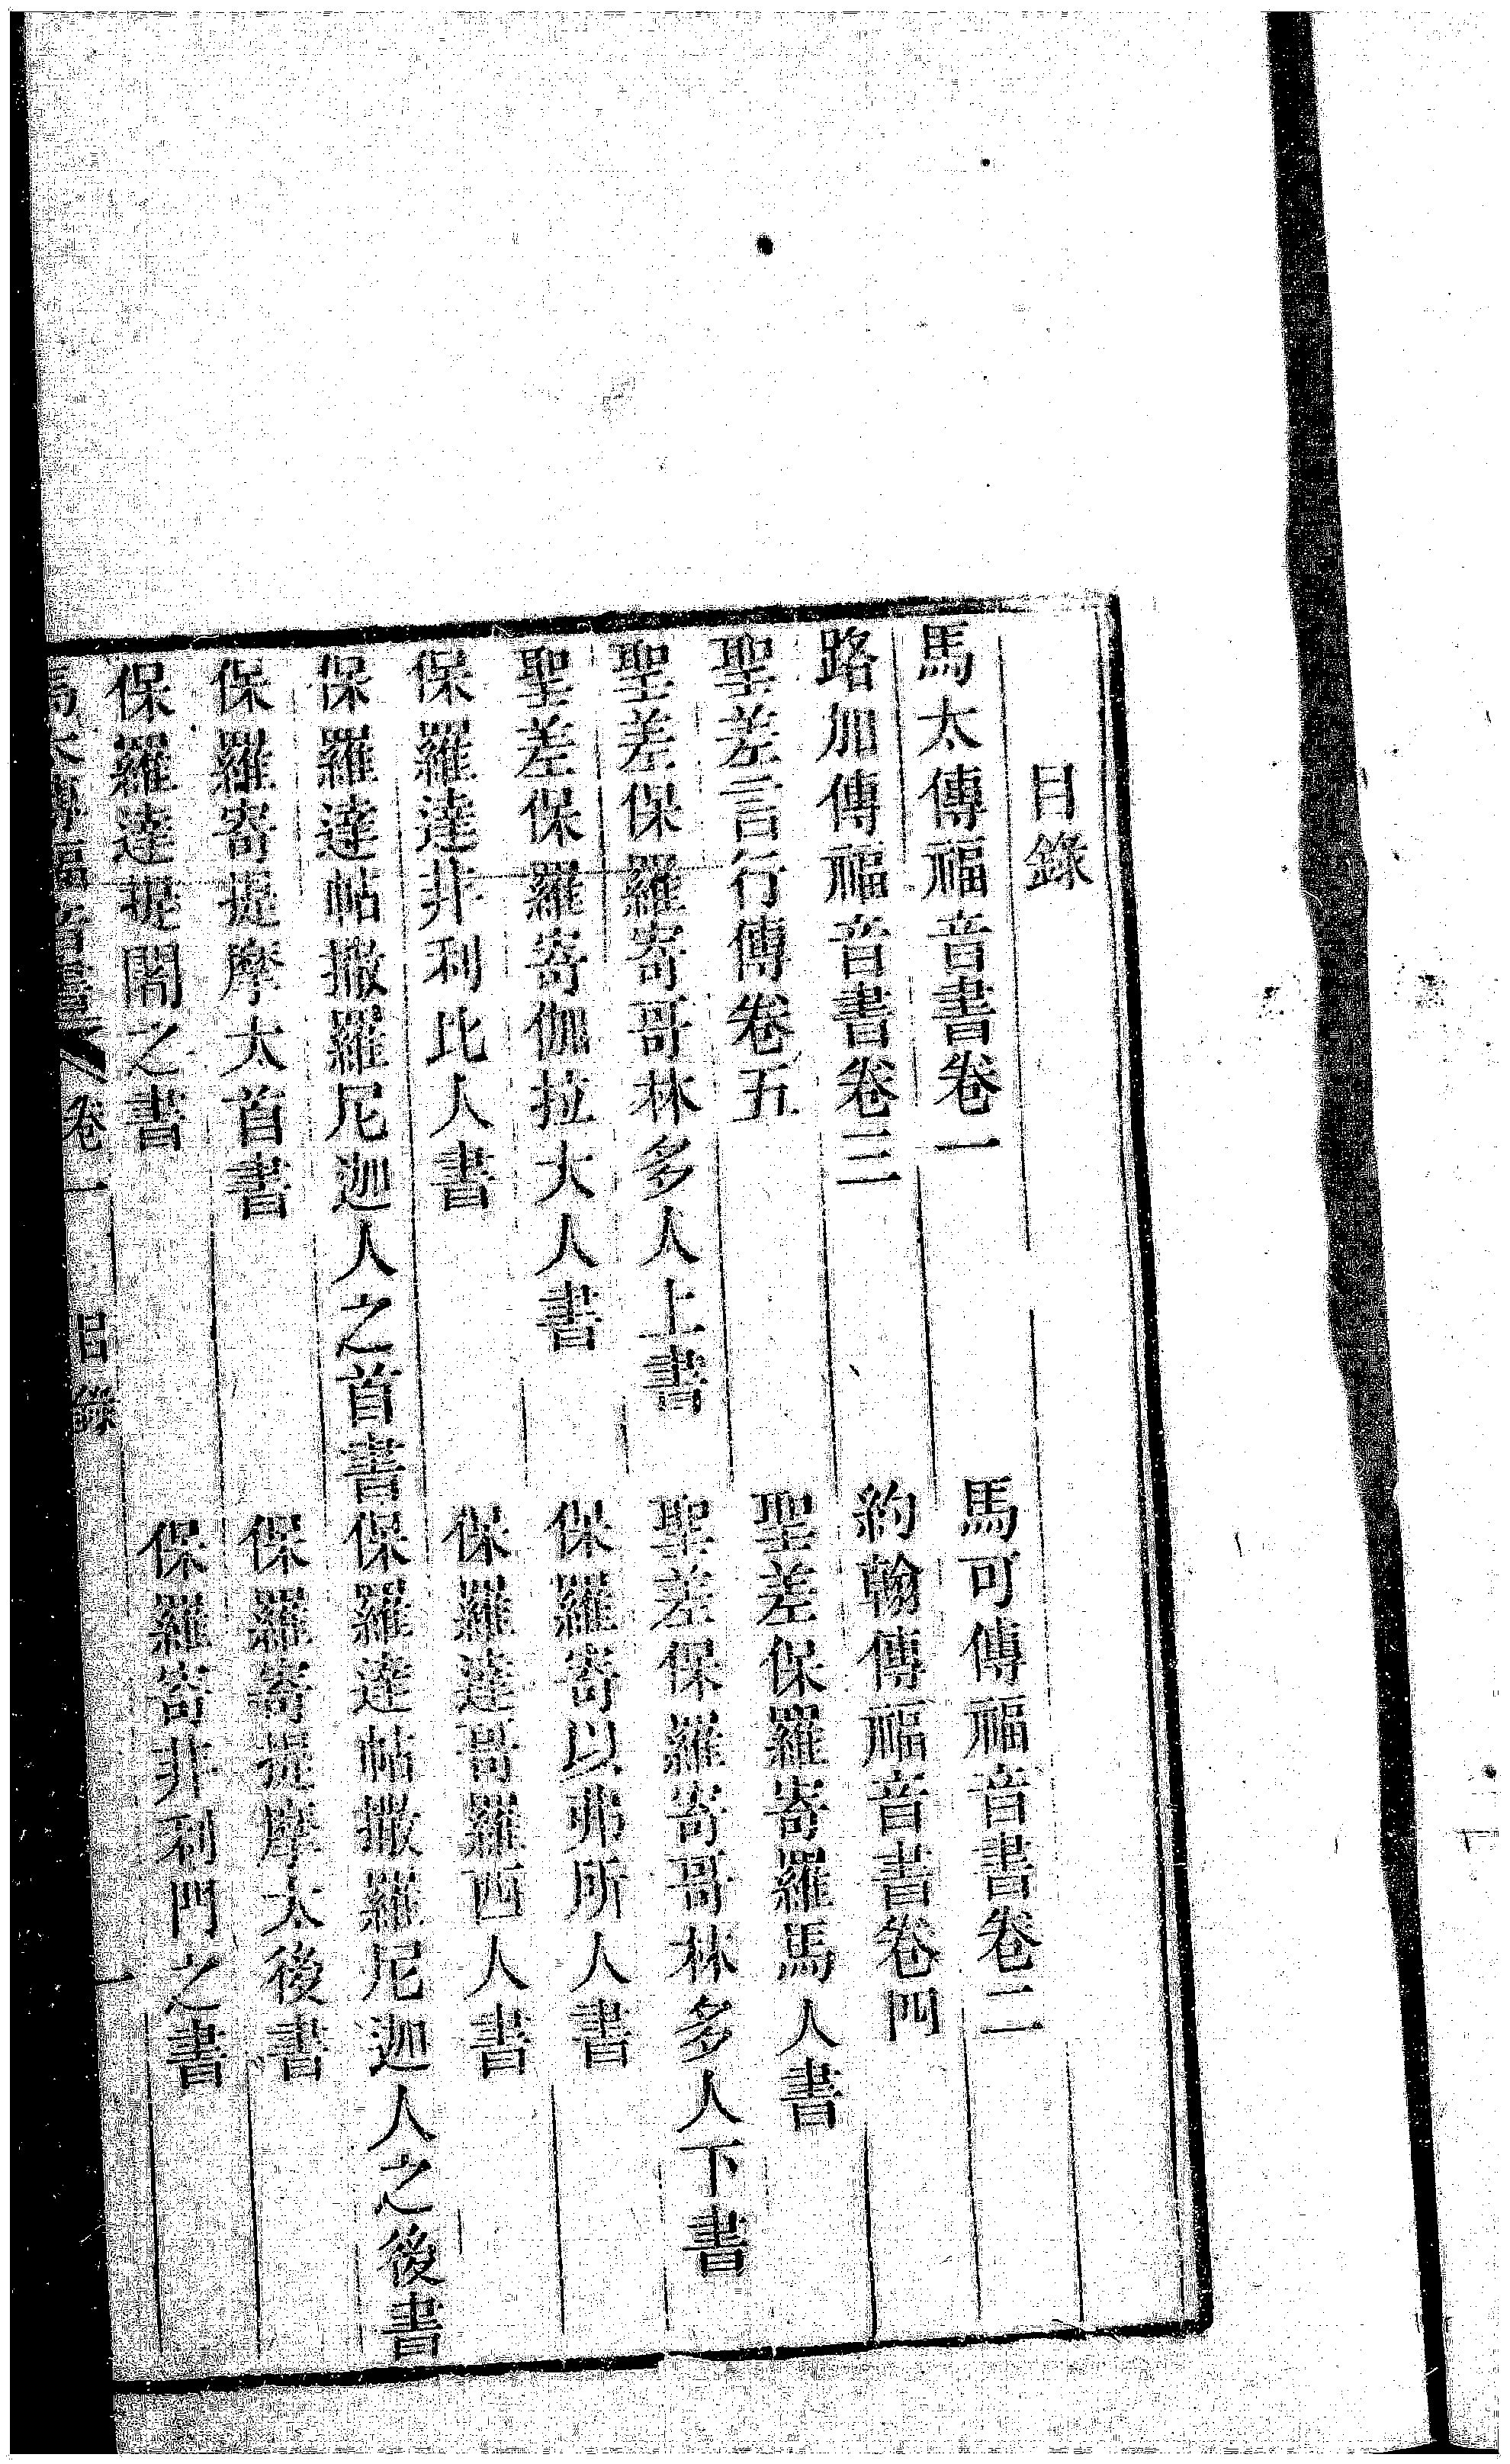 目錄
馬太傳福音書卷一 馬可傳福音書卷二
路加傳福音書卷三 約翰傳福音書卷四
聖差言行傳卷五 聖差保羅寄羅馬人書
聖差保羅寄哥林多人上書 聖差保羅寄哥林多人下書
聖差保羅寄伽拉大人書 保羅寄以弗所人書
保羅達非利比人書 保羅達哥羅西人書
保羅達帖撒羅尼迦人之首書 保羅達帖撒羅尼迦人之後書
保羅寄提摩太首書 保羅寄提摩太後書
保羅達提閣之書 保羅寄非利門之書
馬太傳福音書 卷一 目錄 一